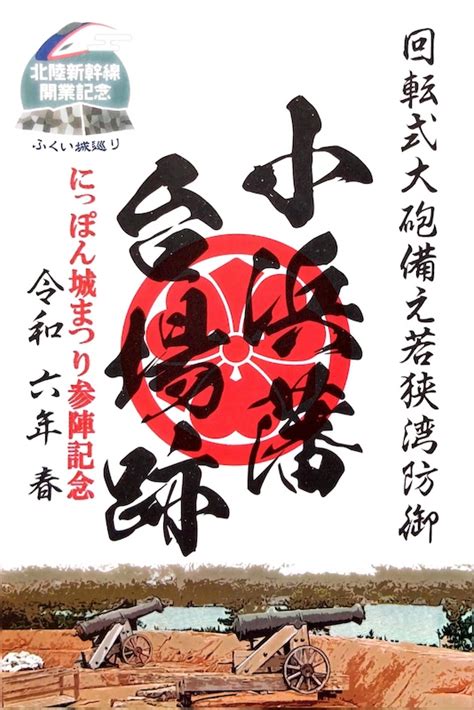 回転式大砲備え若狭湾防御
小浜藩
台場跡
北陸新幹線
開業記念
ふくい城巡り
にっぽん城まつり参陣記念
令和六年春